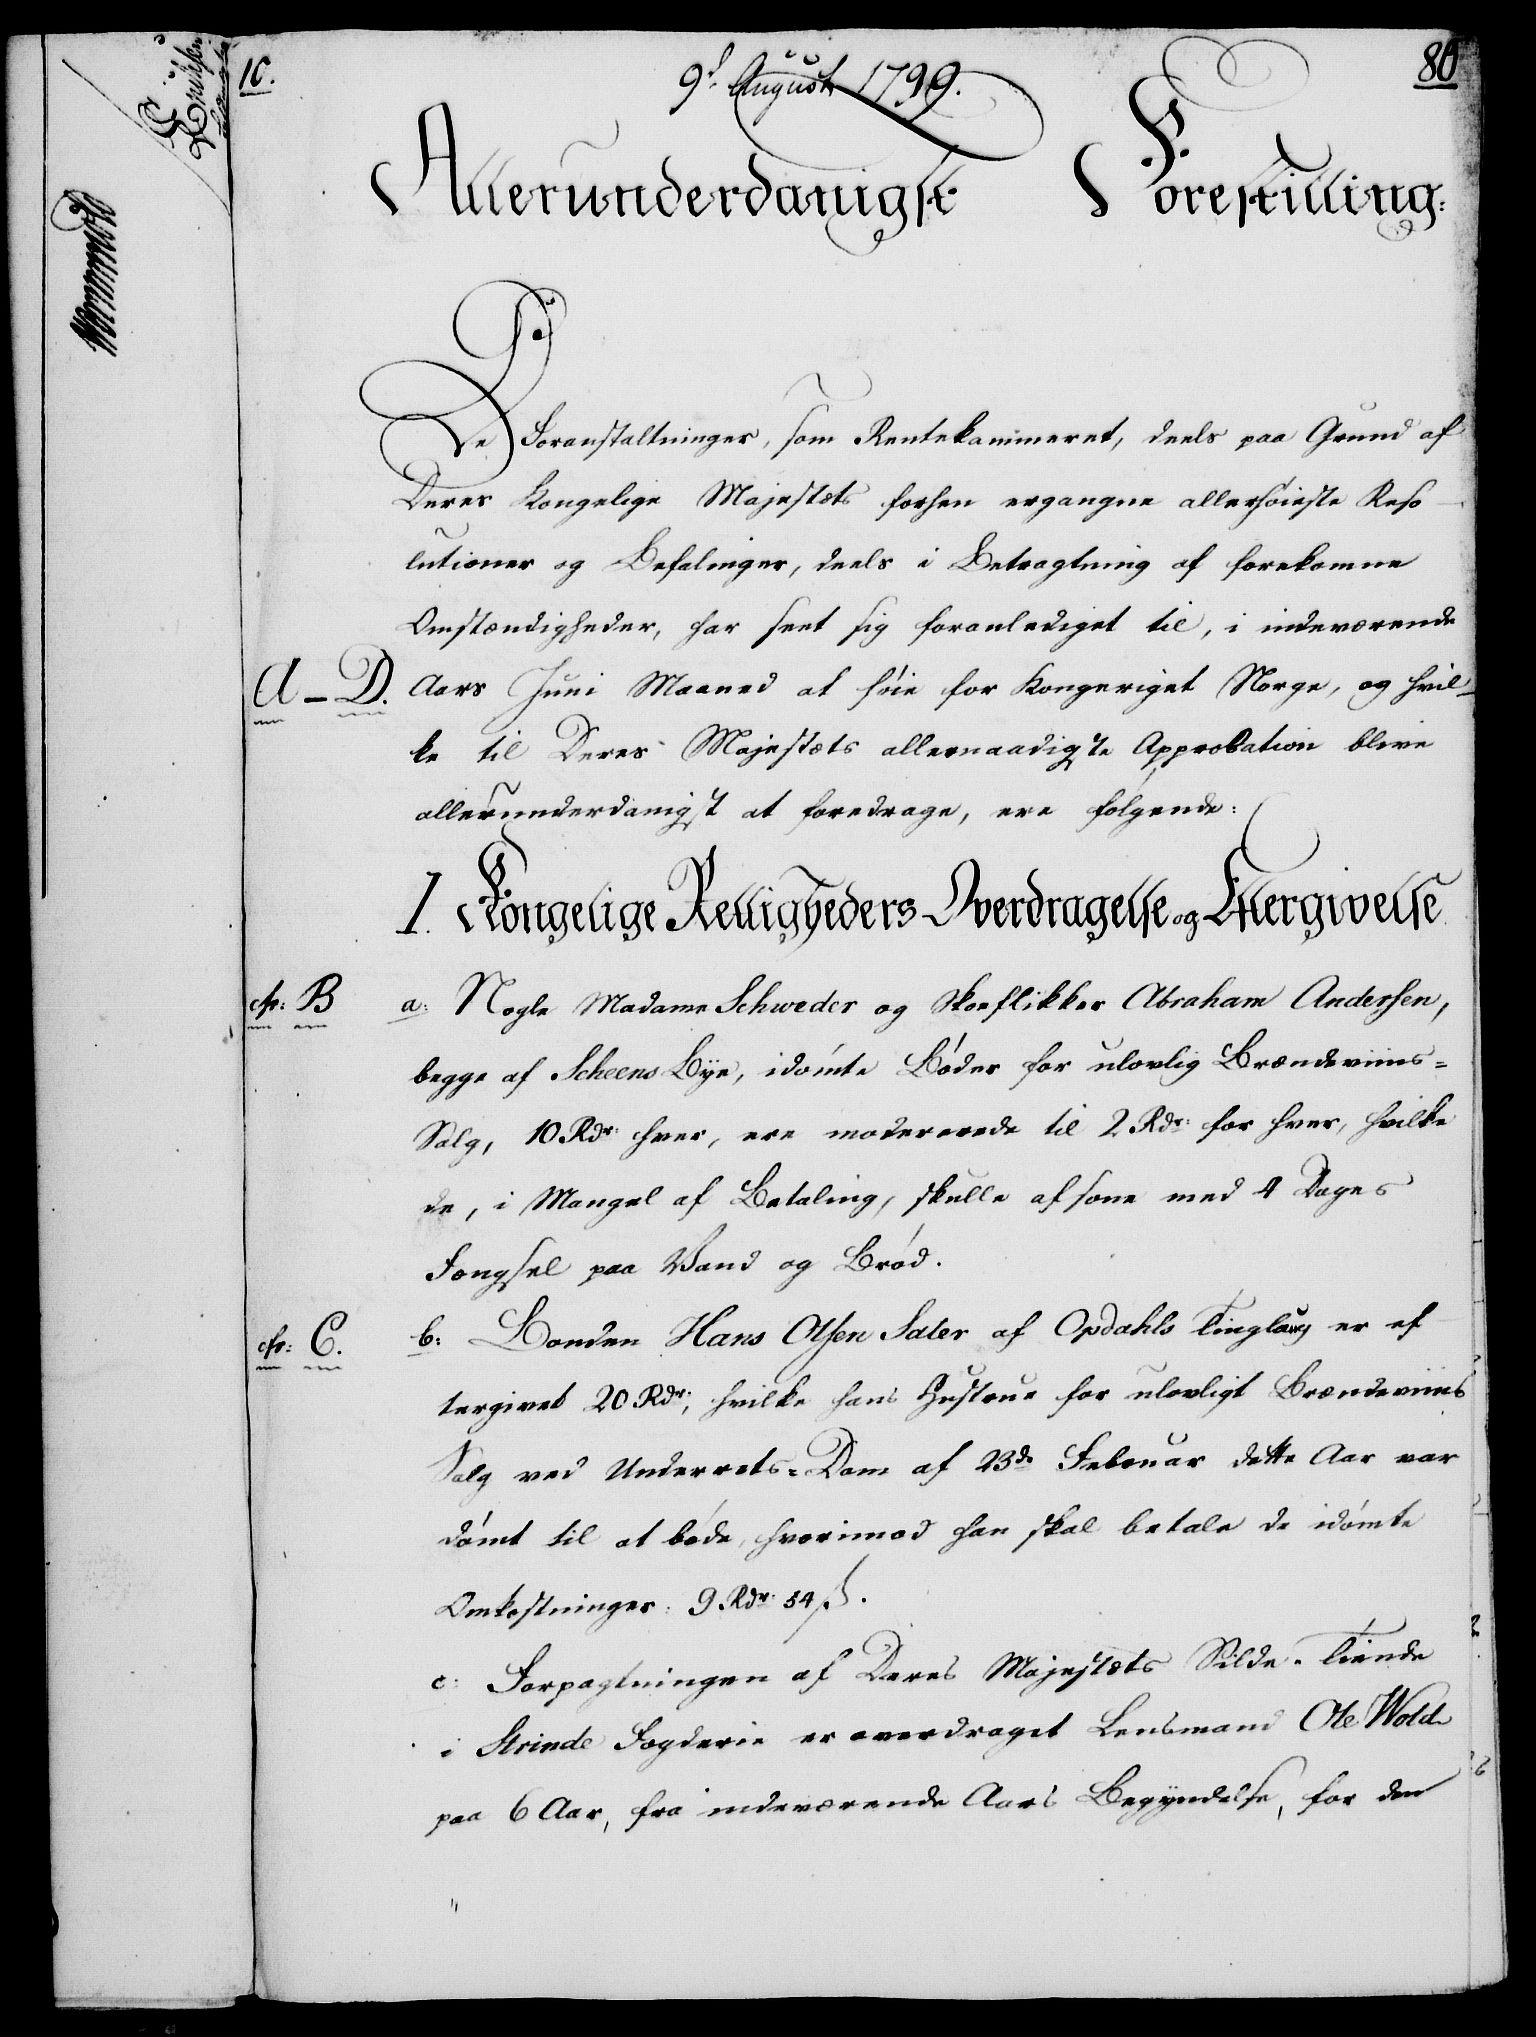 10.
9d August 1799.
80
Allerunderdanigst Forestilling:
De Foranstaltninger, som Rentekammeret, deels paa Grund af
Deres Kongelige Majestæts forhen ergangne allerhøieste Reso-
lutioner og Befalinger, deels i Betragtning af forekomne
Omstændigheder, har seet sig foranlediget til, i indeværende
A-D. Aars Juni Maaned at føie for Kongeriget Norge, og hvil-
ke til Deres Majestæts allernaadigste Approbation blive
allerunderdanigst at foredrage, ere følgende:
I. Kongelige Rettigheders Overdragelse og Eftergivelse
cfr: B a: Nogle Madame Schweder og Skoeflikker Abraham Andersen,
begge af Scheens Bye, idømte Bøder for ulovlig Brændeviins-
Salg, 10 Rdr: hver, ere modererede til 2 Rdr: for hver, hvilke
de, i Mangel af Betaling, skulle afsone med 4 Dages
Fængsel paa Vand og Brød.
cfr: C. b: Bonden Hans Olsen Sater af Opdahls Tinglaug er ef
tergivet 20 Rdr:, hvilke hans Hustrue for ulovligt Brændeviins
Salg ved Underrets-Dom af 23de Februar dette Aar var
dømt til at bøde, hvorimod han skal betale de idømte
Omkostninger: 9 Rdr: 54 ß.
c: Forpagtningen af Deres Majestæts Silde-Tiende
i Strinde Fogderie er overdraget Lensmand Ole Wold
paa 6 Aar, fra indeværende Aars Begyndelse, for den